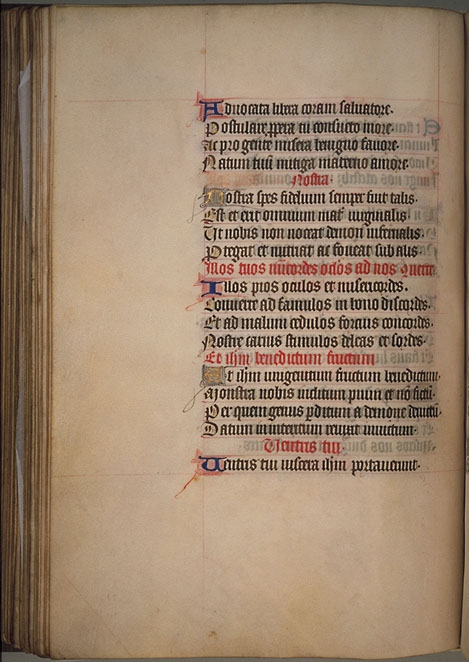 Aduocata libera coram saluatore.
Postulare propera tu consueto more.
Ac pro gente misera benigno fauore.
Natum tuu mitiga materno amore.
Nostra.
Nostra spes fidelium semper fuit talis.
Est et erit omnium mat uirginalis.
Ut nobis non noceat demon infernalis.
Protegat et nutriat ac foueat sub alis.
Illos tuos mi͠cordes oclos ad nos
Illos pios oculos et misericordes.
Conuerte ad famulos in bono discordes.
Et ad malum sedulos forcius concordes.
Nostre carnis stimulos deleas et sordes.
Et ihm benedictum fructum
Et ihm unigenitum fructum benedictum.
Monstra nobis inclitum
Per quem genus pditum a demone
Datum in interitum
Uentris tui.
Uentris tui uiscera ihm portauerunt.